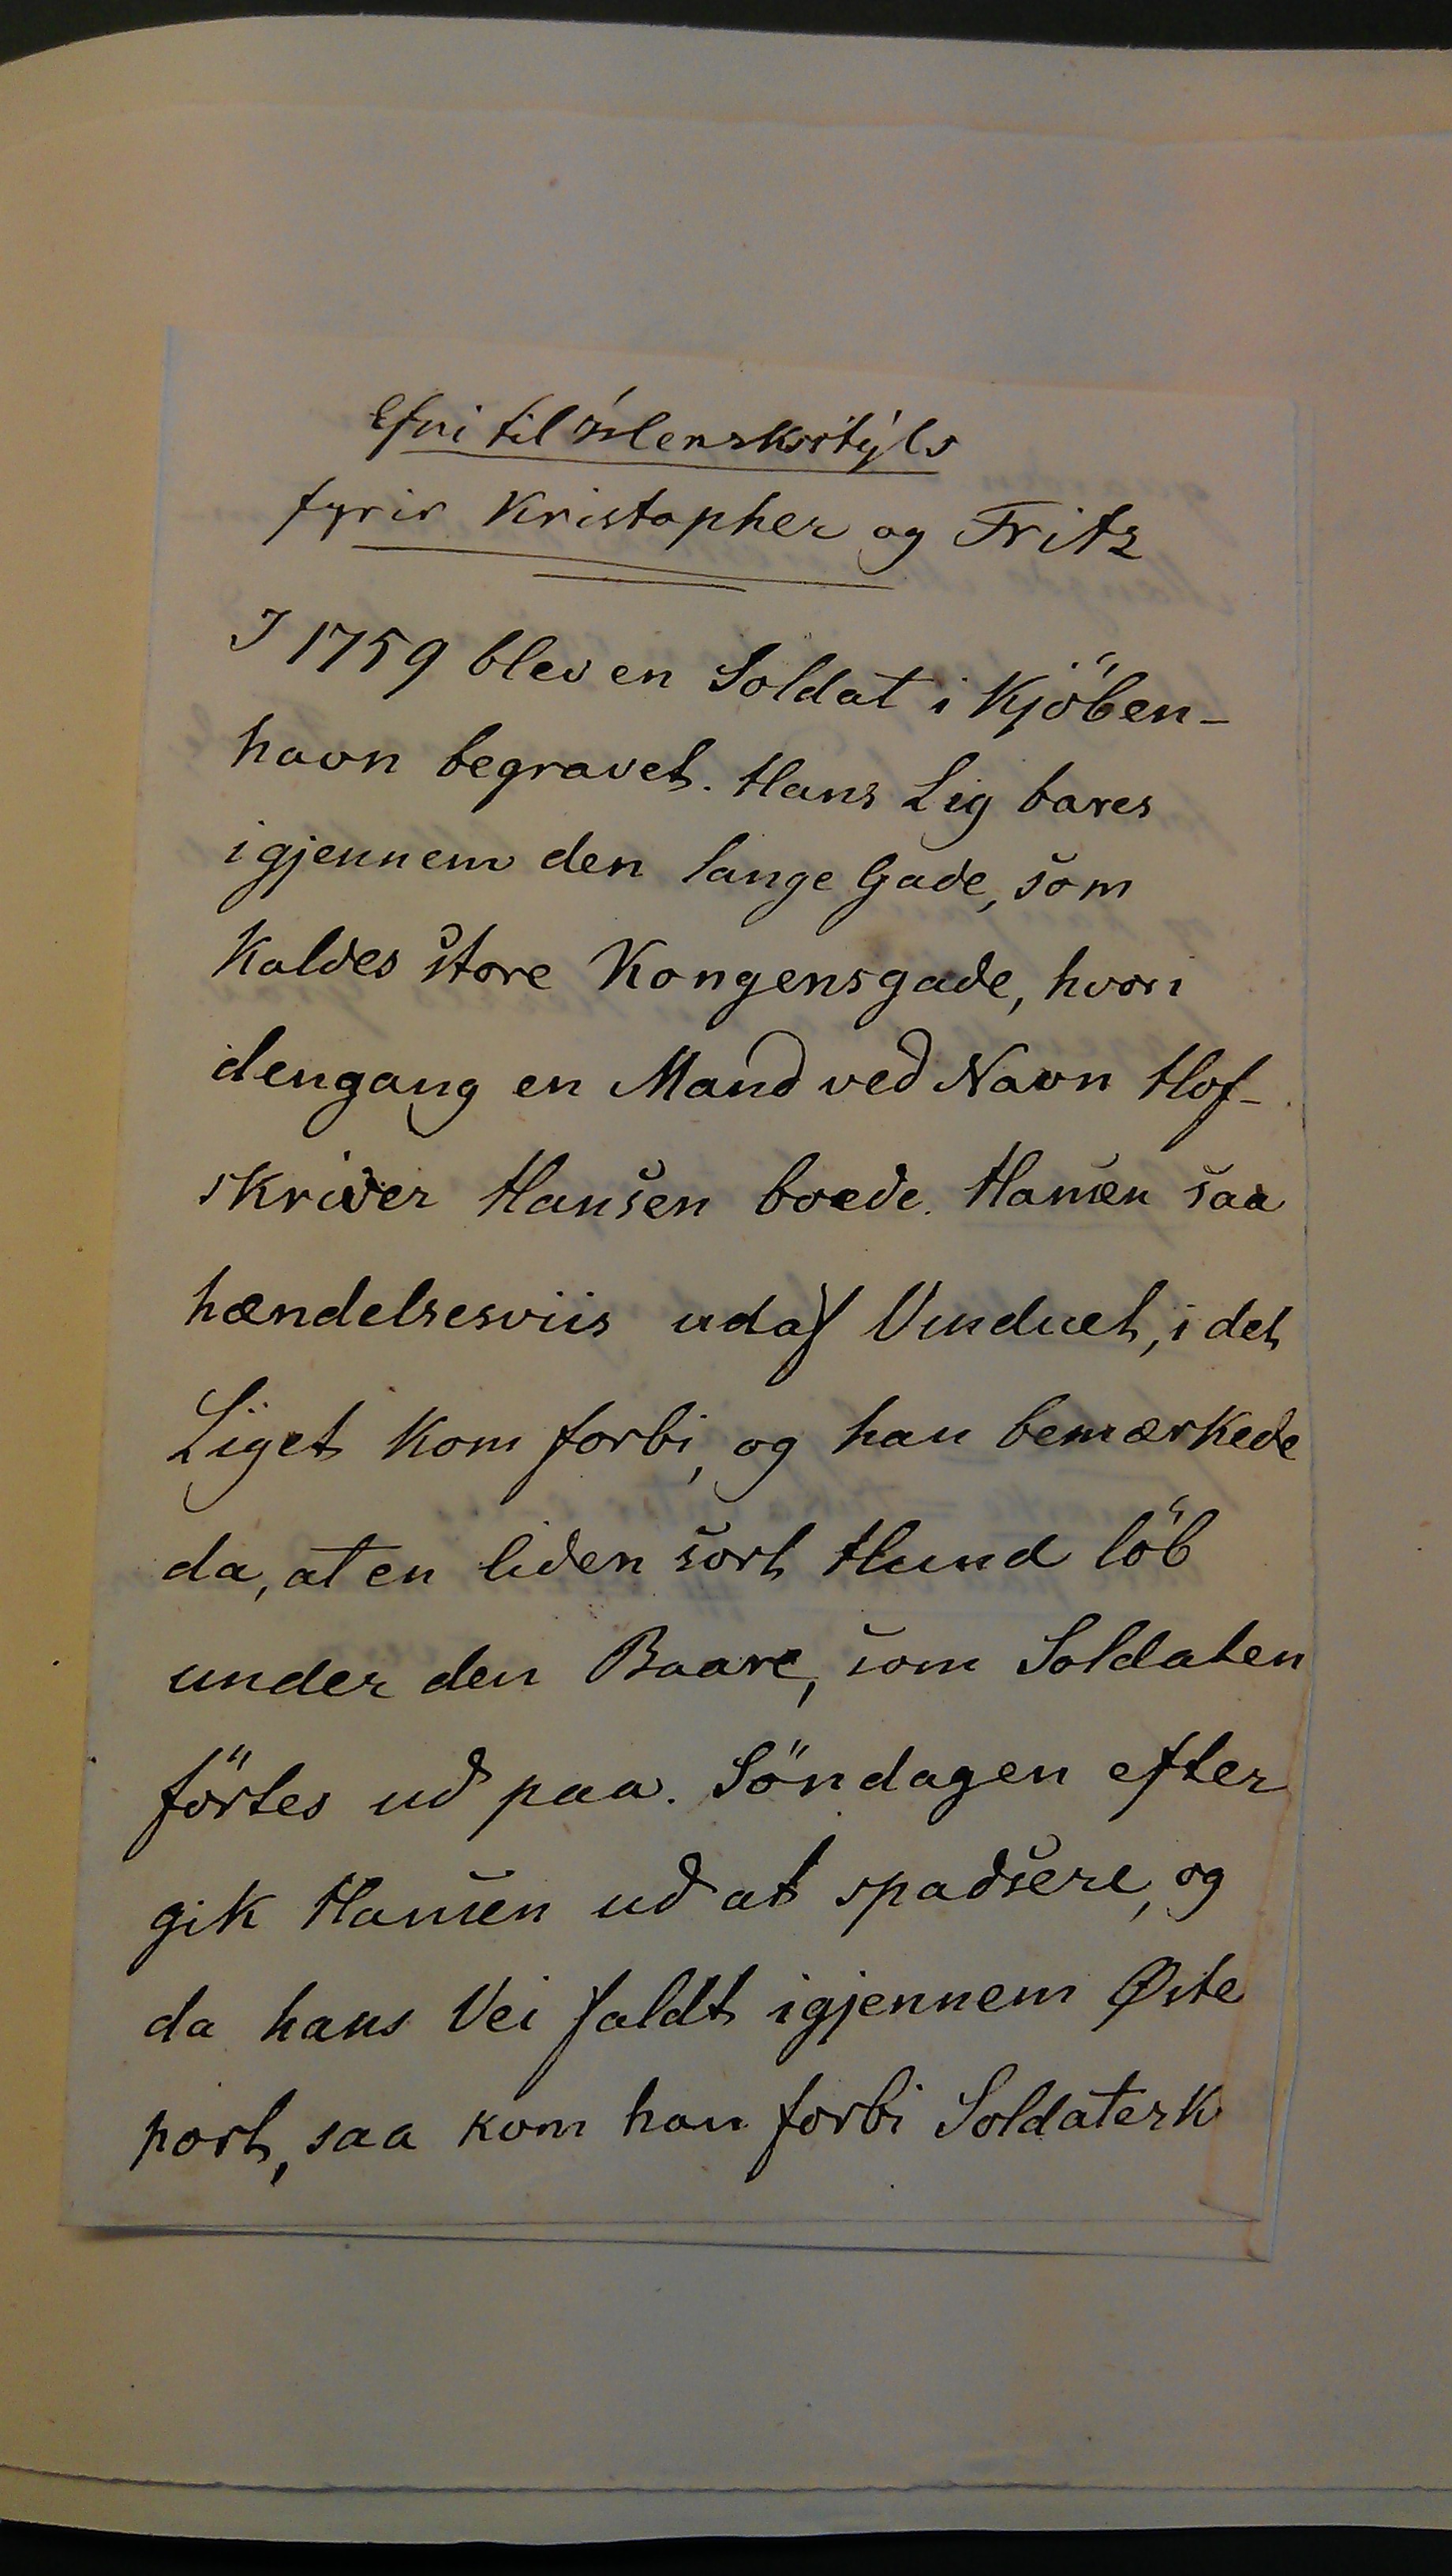 Efni til íslenskstýls
fyrir Kristopher og Fritz
I 1759 blev en Soldat i Kjöben-
havn begravet. Hans Lig bares
igjennem den lange Gade, som
Kaldes store Kongensgade, hvori
dengang en Mand ved Navn Hof-
skriver Hansen boede. Hansen saa
hændelsesviis udaf Vinduet, i det
Liget kom forbi, og han bemærkede
da, at en liden sort Hund löb
under den Baare, som Soldaten
förtes ud paa. Söndagen efter
gik Hansen ud at spadsere, og
da hans Vei faldt igjennem Øste
port, saa kom han forbi Soldaterk